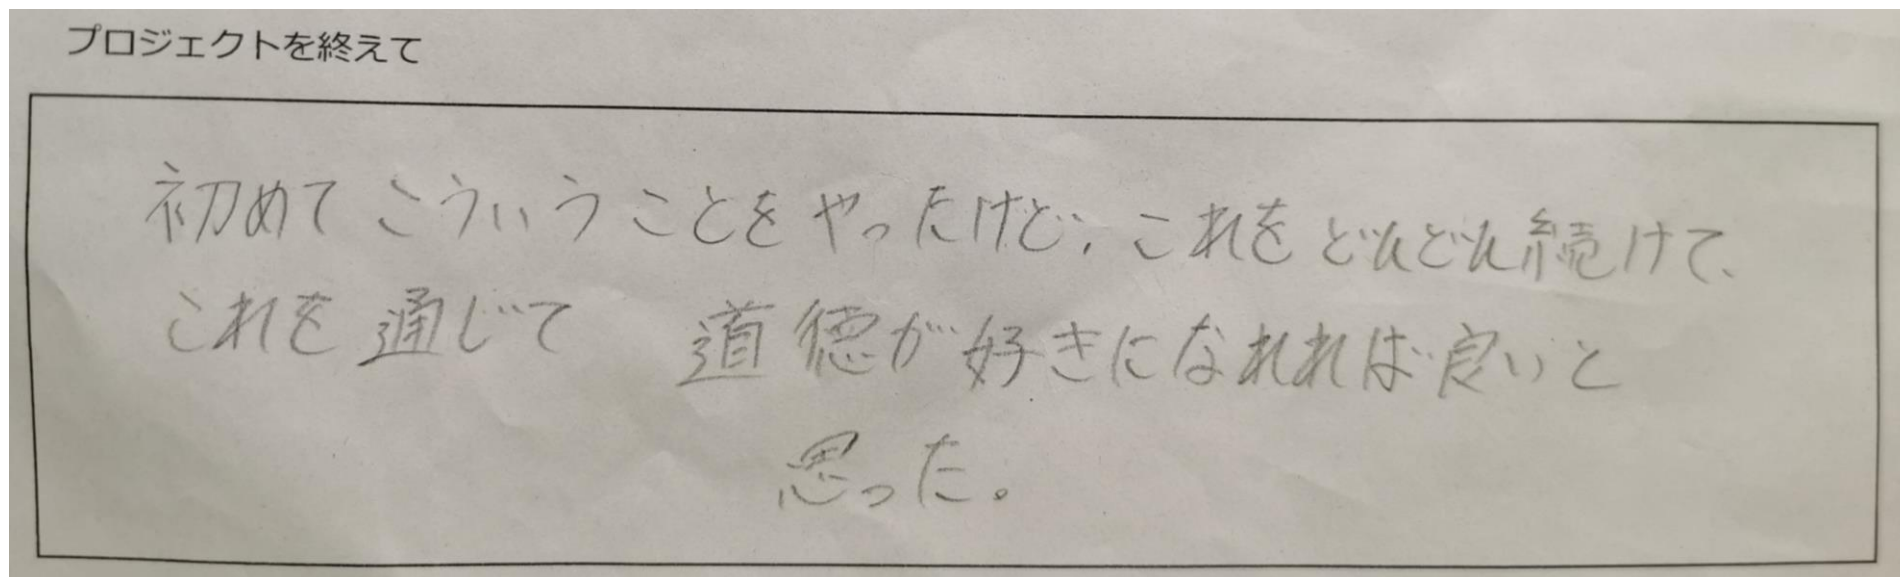 プロジェクトを終えて
初めてこういうことをやったけど、これをどんどん続けて、
これを通じて 道徳が好きになれれば良いと
思った。